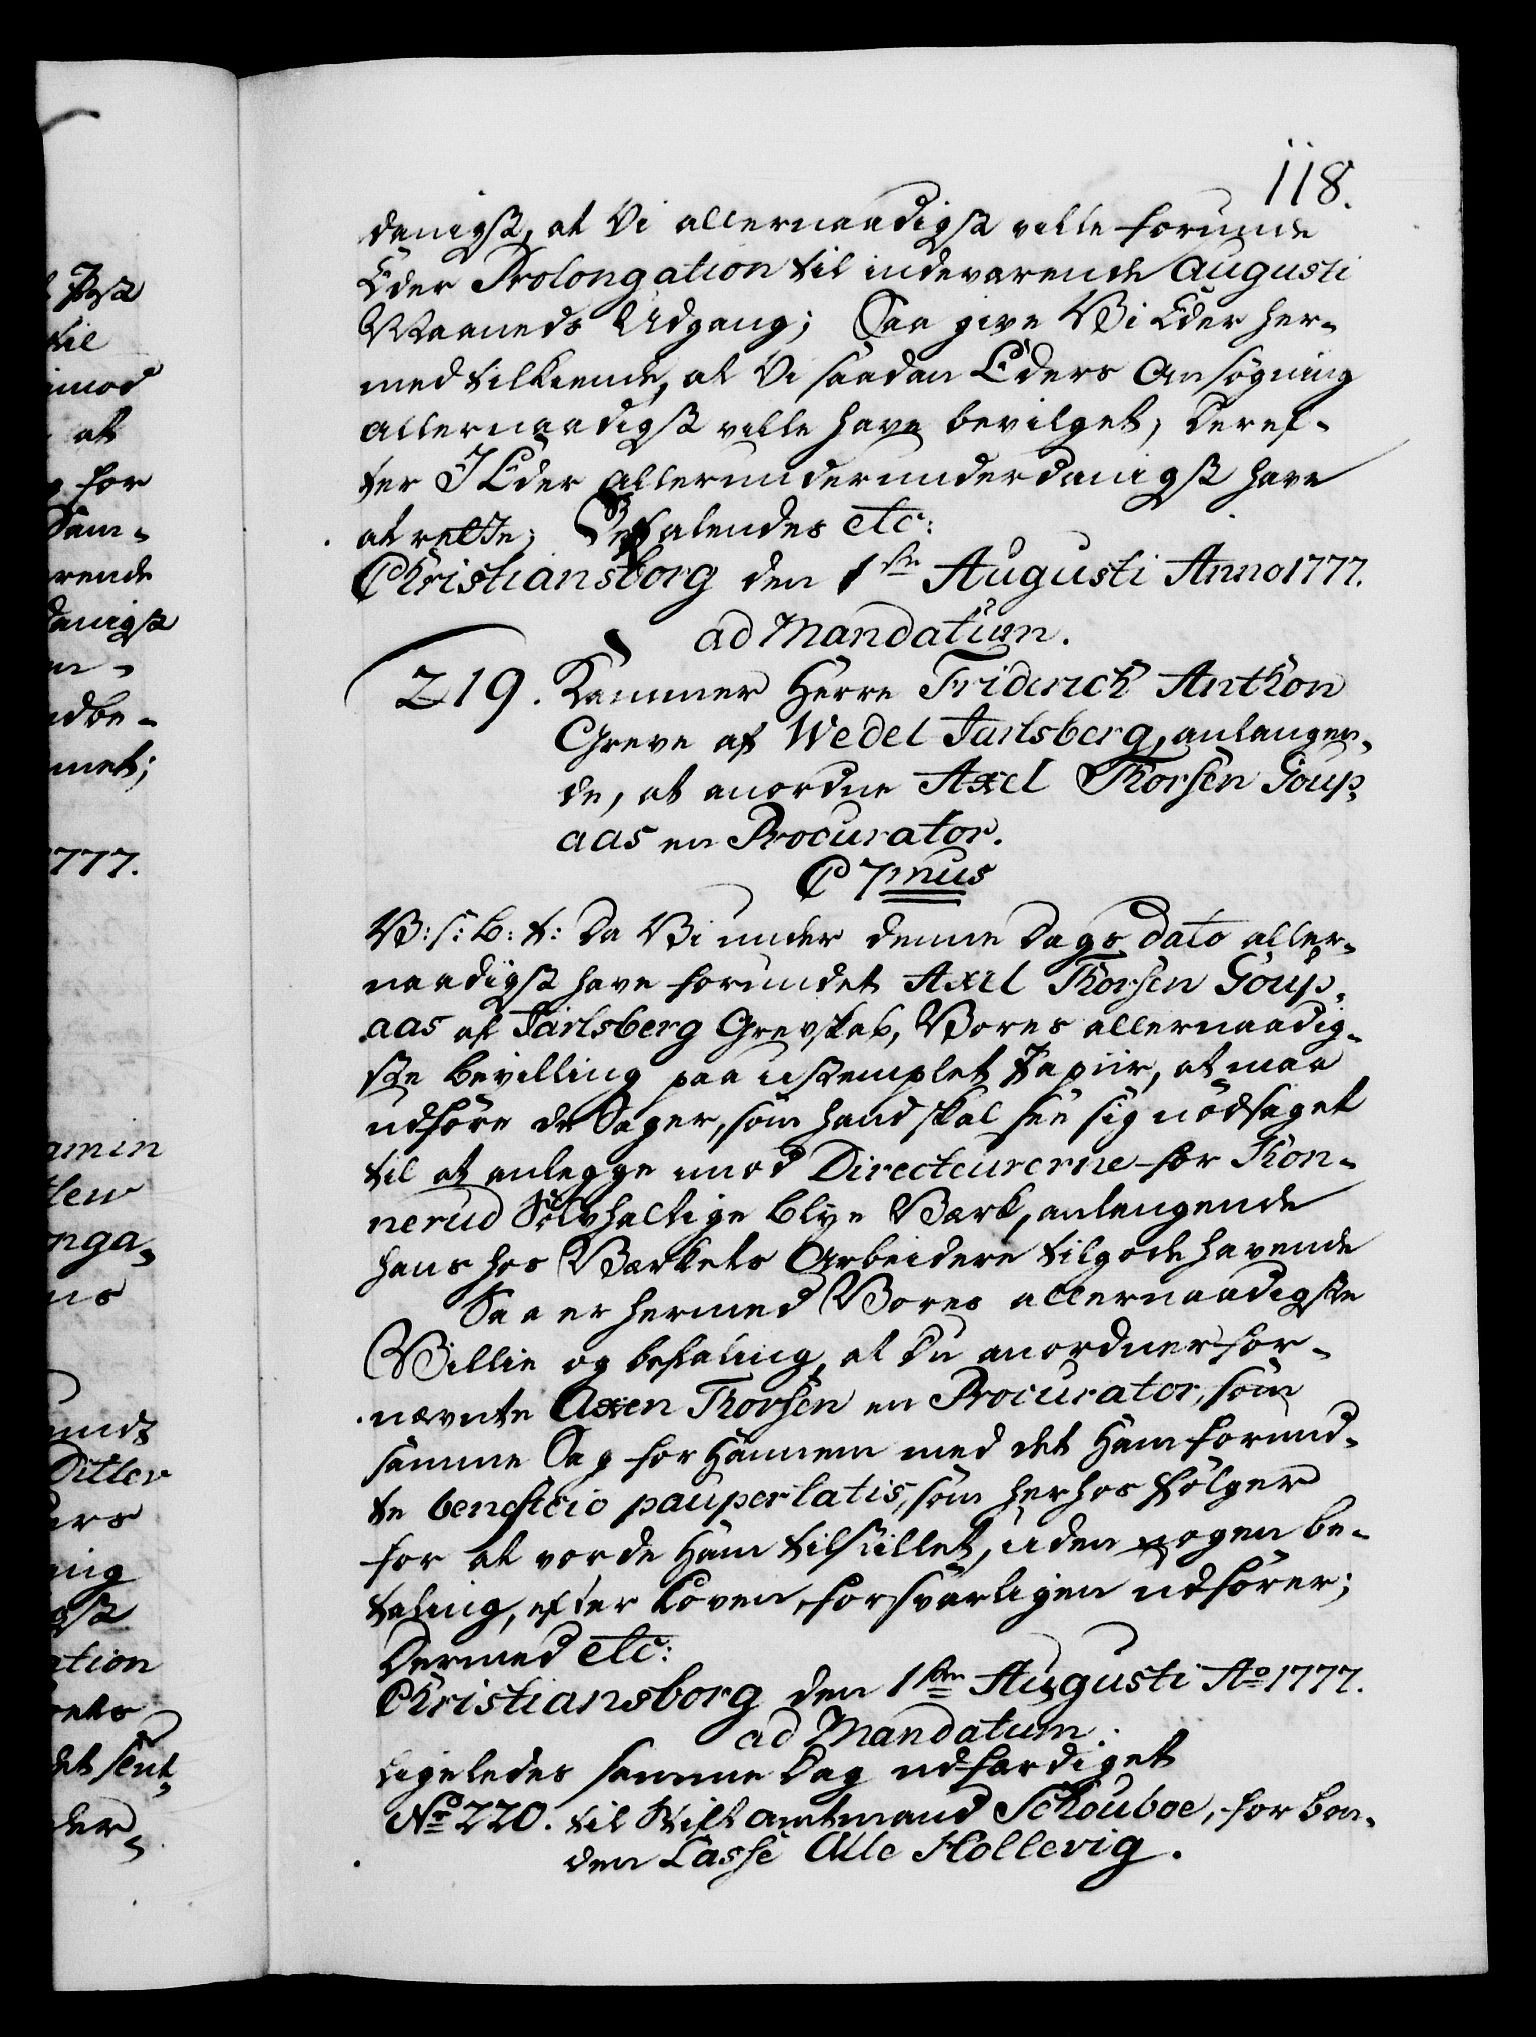 118.
danigst, at Vi allernaadigst ville forunde
Eder Prolongation til indeværende Augusti
Maaneds Udgang; Saa give Vi Eder her-
med tilkiende, at Vi saadan Eders Ansøgning
allernaadigst ville have bevilget; Deref-
ter I Eder allerunderunderdanigst have
at rette; Befalendes etc:
Christiansborg den 1ste Augusti Anno 1777.
ad Mandatum.
219. Kammer Herre Friderich Anthon
Greve af Wedel Jarlsberg, anlangen-
de, at anordne Axel Thorsen Goup-
aas en Procurator.
C 7mus
V: s: b: t: Da Vi under denne Dags dato aller-
naadigst have forundet Axel Thorsen Goup-
aas af Jarlsberg Grevskab, Vores allernaadig-
ste Bevilling paa ustemplet Papiir, at maa
udføre de Sager, som hand skal see sig nødsaget
til at anlegge imod Directeurerne for Kon-
nerud Sølvhaltige Blye Værk, anlangende
hans hos Værkets Arbeidere tilgodehavende
Saa er hermed Vores allernaadigste
Villie og befaling, at Du anordner for-
nævnte Axen Thorsen en Procurator, som
samme Sag for Hannem med det Ham forund-
te beneficio paupertatis, som herhos følger
for at vorde Ham tilstillet, uden nogen be-
taling, efter Loven, forsvarligen udfører;
Dermed etc:
Christiansborg den 1ste Augusti Ao 1777.
ad Mandatum.
Ligeledes samme Dag udfærdiget
No 220. til Stiftamtmand Schouboe, for Bon-
den Lasse Olle Hollevig.
at
for
777.